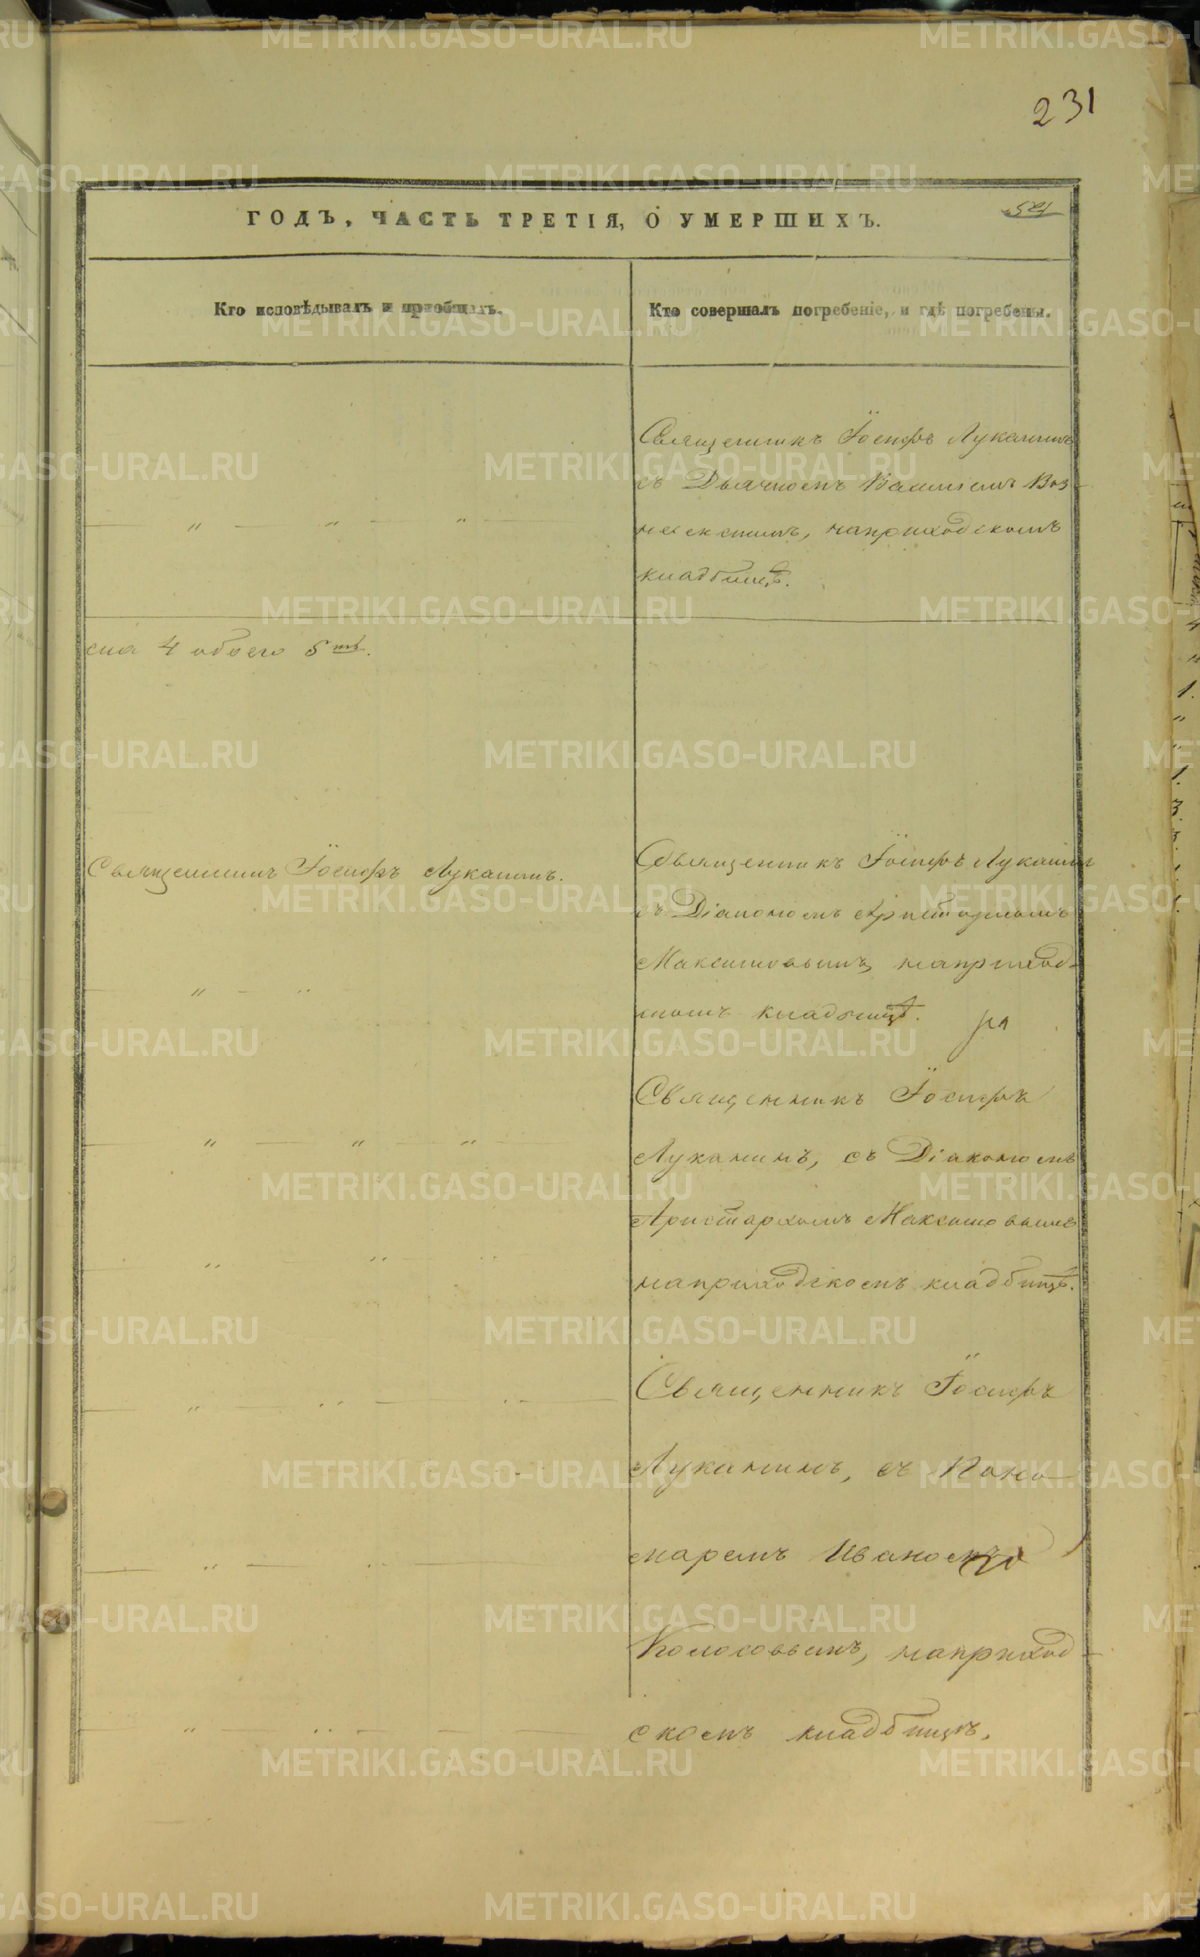 231
ГОДЪ, ЧАСТЬ ТРЕТІЯ, О УМЕРШИХЪ.
Кто исповѣдывалъ и пріобщалъ.
Кто совершалъ погребеніе, и гдѣ погребены.
Священникъ Іосифъ Луканинъ
съ Дьячкомъ Василіемъ Воз-
несенскимъ, наприходскомъ
кладбищѣ.
ска 4 обоего 5ть.
Священникъ Іосифъ Луканинъ.
Священникъ Іосифъ Луканинъ
съ Діакономъ Аристархомъ
Максимовымъ, наприход-
скомъ кладбищѣ.
Священникъ Іосифъ
Луканинъ, съ Діакономъ
Аристархомъ Максимовымъ
наприходскомъ кладбищѣ.
Священникъ Іосифъ
Луканинъ, съ Поно-
маремъ Иваномъ
Колосовымъ, наприход-
скомъ кладбищѣ.
METRIKI.GASO-URAL.RU